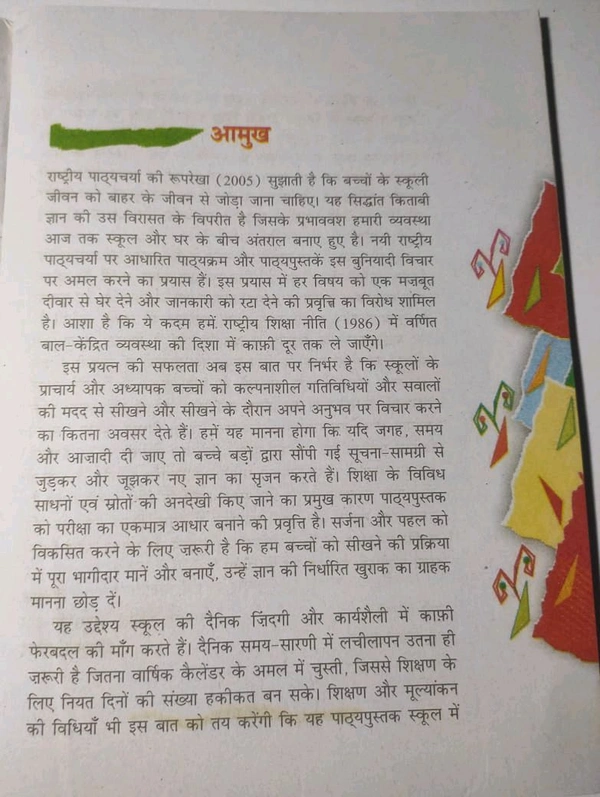 आमुख
राष्ट्रीय पाठ्यचर्या की रूपरेखा (2005) सुझाती है कि बच्चों के स्कूली
जीवन को बाहर के जीवन से जोड़ा जाना चाहिए। यह सिद्धांत किताबी
ज्ञान की उस विरासत के विपरीत है जिसके प्रभाववश हमारी व्यवस्था
आज तक स्कूल और घर के बीच अंतराल बनाए हुए है। नयी राष्ट्रीय
पाठ्यचर्या पर आधारित पाठ्यक्रम और पाठ्यपुस्तकें इस बुनियादी विचार
पर अमल करने का प्रयास हैं। इस प्रयास में हर विषय को एक मज़बूत
दीवार से घेर देने और जानकारी को रटा देने की प्रवृत्ति का विरोध शामिल
है। आशा है कि ये कदम हमें राष्ट्रीय शिक्षा नीति (1986) में वर्णित
बाल-केंद्रित व्यवस्था की दिशा में काफ़ी दूर तक ले जाएँगे।
इस प्रयत्न की सफलता अब इस बात पर निर्भर है कि स्कूलों के
प्राचार्य और अध्यापक बच्चों को कल्पनाशील गतिविधियों और सवालों
की मदद से सीखने और सीखने के दौरान अपने अनुभव पर विचार करने
का कितना अवसर देते हैं। हमें यह मानना होगा कि यदि जगह, समय
और आज़ादी दी जाए तो बच्चे बड़ों द्वारा सौंपी गई सूचना-सामग्री से
जुड़कर और जूझकर नए ज्ञान का सृजन करते हैं। शिक्षा के विविध
साधनों एवं स्रोतों की अनदेखी किए जाने का प्रमुख कारण पाठ्यपुस्तक
को परीक्षा का एकमात्र आधार बनाने की प्रवृत्ति है। सर्जना और पहल को
विकसित करने के लिए ज़रूरी है कि हम बच्चों को सीखने की प्रक्रिया
में पूरा भागीदार मानें और बनाएँ, उन्हें ज्ञान की निर्धारित खुराक का ग्राहक
मानना छोड़ दें।
यह उद्देश्य स्कूल की दैनिक ज़िंदगी और कार्यशैली में काफ़ी
फेरबदल की माँग करते हैं। दैनिक समय-सारणी में लचीलापन उतना ही
ज़रूरी है जितना वार्षिक कैलेंडर के अमल में चुस्ती, जिससे शिक्षण के
लिए नियत दिनों की संख्या हकीकत बन सके। शिक्षण और मूल्यांकन
की विधियाँ भी इस बात को तय करेंगी कि यह पाठ्यपुस्तक स्कूल में